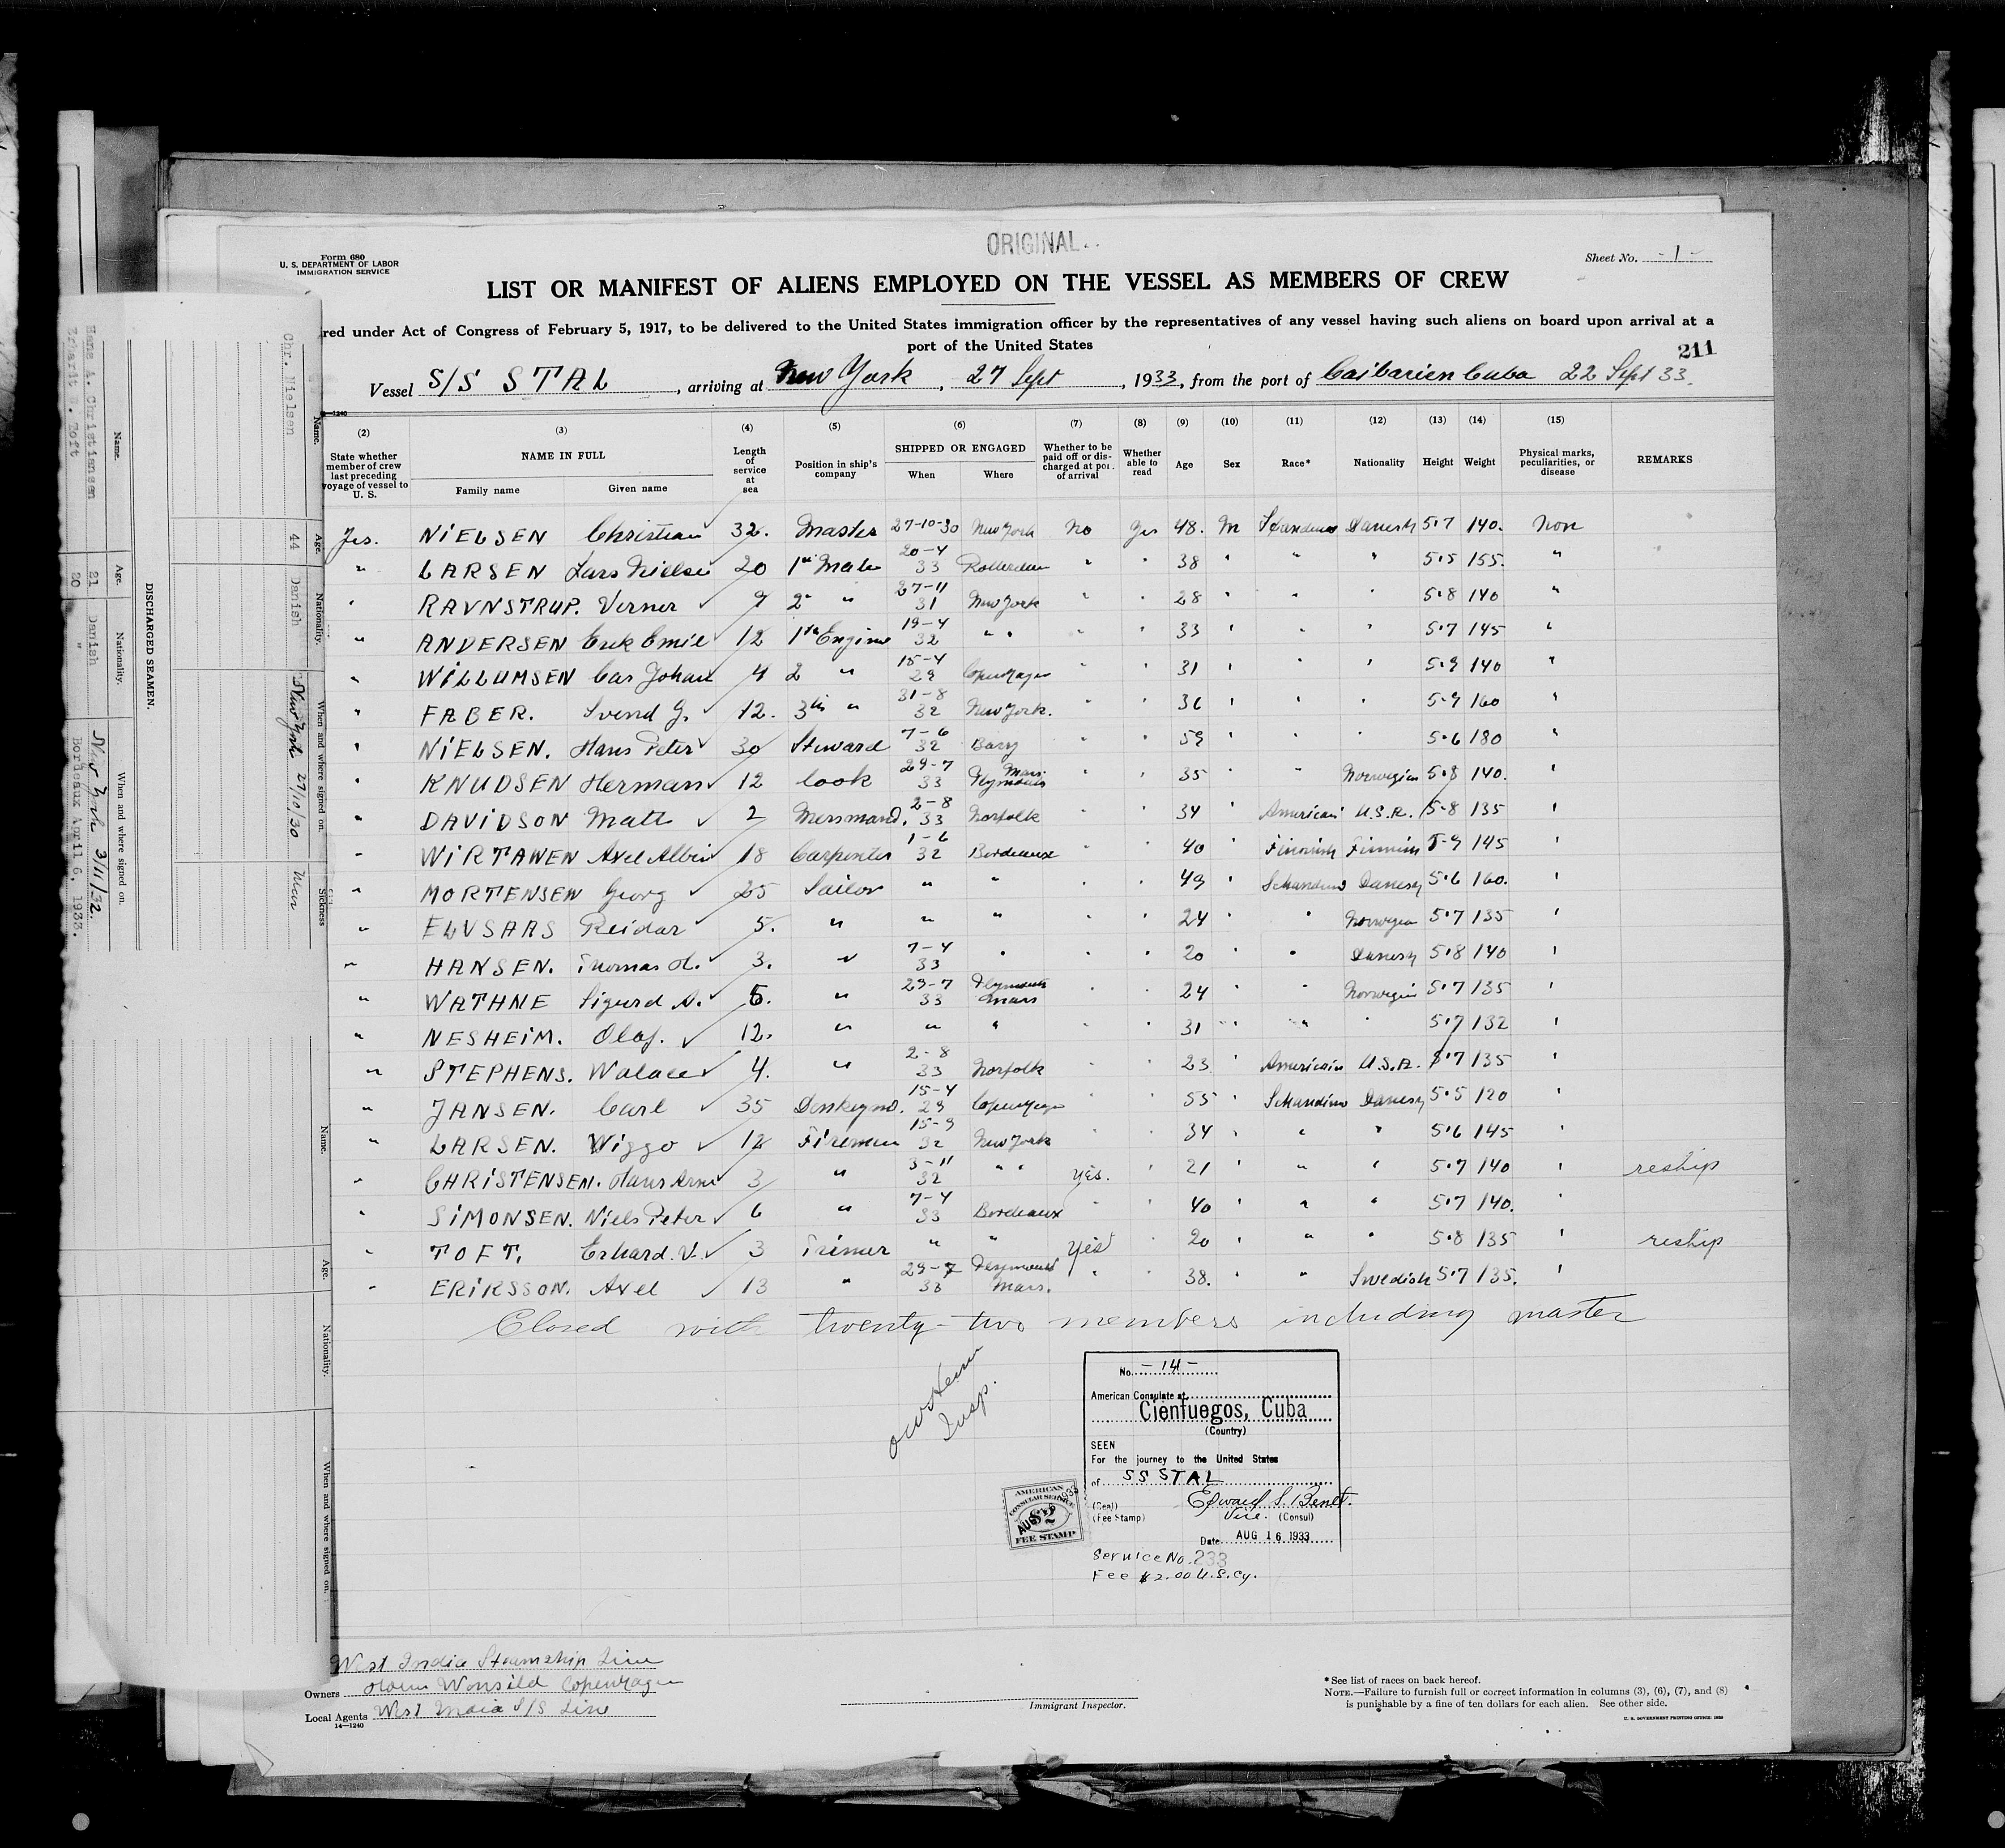 ORIGINAL
Form 680
U. S. DEPARTMENT OF LABOR
IMMIGRATION SERVICE
Sheet No. -1-
LIST OR MANIFEST OF ALIENS EMPLOYED ON THE VESSEL AS MEMBERS OF CREW
red under Act of Congress of February 5, 1917, to be delivered to the United States immigration officer by the representatives of any vessel having such aliens on board upon arrival at a
port of the United States
211
Vessel S/S STAL, arriving at New York, 27 Sept, 1933, from the port of Caibarien Cuba 22 Sept 33.
(2) (3) (4) (5) (6) (7) (8) (9) (10) (11) (12) (13) (14) (15)
State whether member of crew last preceding voyage of vessel to U. S. NAME IN FULL Family name Given name Length of service at sea Position in ship's company SHIPPED OR ENGAGED When Where Whether to be paid off or discharged at port of arrival Whether able to read Age Sex Race* Nationality Height Weight Physical marks, peculiarities, or disease REMARKS
Yes. NIELSEN Christian 32. Master 27-10-30 New York No Yes 48. M Danesh 5·7 140. Non
" LARSEN Lars Nielse 20 1st Mate 20-4 33 " " 38 " " " 5·5 155. "
" RAVNSTRUP. Verner 9 2 " 27-11 31 New York " " 28 " " " 5·8 140 "
" ANDERSEN Erik Emil 12 1th Engine 19-4 32 " " " " 33 " " " 5·7 145 "
" WILLUMSEN Car Johan 4 2 " 15-4 29 Copenhagen " " 31 " " " 5·9 140 "
" FABER. Svend J. 12. 3th " 31-8 32 New York. " " 36 " " " 5·9 160 "
" NIELSEN. Hans Peter 30 Steward 7-6 32 Bary " " 59 " " " 5·6 180 "
" KNUDSEN Herman 12 Cook 29-7 33 Plymouth Mass. " " 35 " " Norwegian 5·8 140. "
" DAVIDSON Matt 2 Messmand. 2-8 33 Norfolk " " 34 " American U.S.A. 5-8 135 "
" WIRTANEN Axel Albin 18 Carpenter 1-6 32 Bordeaux " " 40 " Finnish 5-9 145 "
" MORTENSEN Georg 25 Sailor " " " " 49 " Danesh 5·6 160. "
" ELVSAAS Reidar 5. " " " " " 24 " " Norwegian 5·7 135 "
" HANSEN. Thomas H. 3. " 7-4 33 " " " 20 " " Danesh 5·8 140 "
" WATHNE Sigurd A. 5. " 29-7 33 Plymouth Mass " " 24 " " Norwegian 5·7 135 "
" NESHEIM. Olaf. 12. " " " " " 31 " " " 5·7 132 "
" STEPHENS. Walace 4. " 2-8 33 Norfolk " " 23 " American U.S.A. 5·7 135 "
" JANSEN. Carl 35 Donkeymd. 15-4 29 Copenhagen " " 55 " Danesh 5·5 120 "
" LARSEN. Wiggo 12 Fireman 15-9 32 New York " " 34 " " " 5·6 145 "
" CHRISTENSEN. Hans Arne 3 " 3-11 32 " " Yes. " 21 " " " 5·7 140 " reship
" SIMONSEN. Niels Peter 6 " 7-4 33 Bordeaux " " 40 " " " 5·7 140. "
" TOFT. Erhard. V. 3 Trimer " " Yes " 20 " " " 5·8 135 " reship
" ERIKSSON. Axel 13 " 29-7 33 Plymouth Mass. " " 38. " " Swedish 5·7 135. "
Closed with twenty-two members including master
Insp.
No. -14-
American Consulate at
Cienfuegos, Cuba
(Country)
SEEN
For the journey to the United States
of SS STAL
(Seal) Edward S. Benet.
(Fee Stamp) Vice. (Consul)
Date AUG 16 1933
Service No. 233
Fee $2.00 U.S.Cy.
AMERICAN
CONSULAR SERVICE
$2
FEE STAMP
West India Steamship Line
Owners Wonsild Copenhagen
Local Agents West India S/S Line
14—1240
Immigrant Inspector.
*See list of races on back hereof.
NOTE.—Failure to furnish full or correct information in columns (3), (6), (7), and (8)
is punishable by a fine of ten dollars for each alien. See other side.
U. S. GOVERNMENT PRINTING OFFICE: 1930
DISCHARGED SEAMEN.
Name. Age. Nationality. When and where signed on.
Hans A. Christiansen 21 Danish New York 3/11/32.
Erhard S. Toft 20 " Bordeaux April 6, 1933.
Name. Age. Nationality. When and where signed on. Sickness
Chr. Nielsen 44 Danish New York 27/10/30
Name. Age. Nationality. When and where signed on.